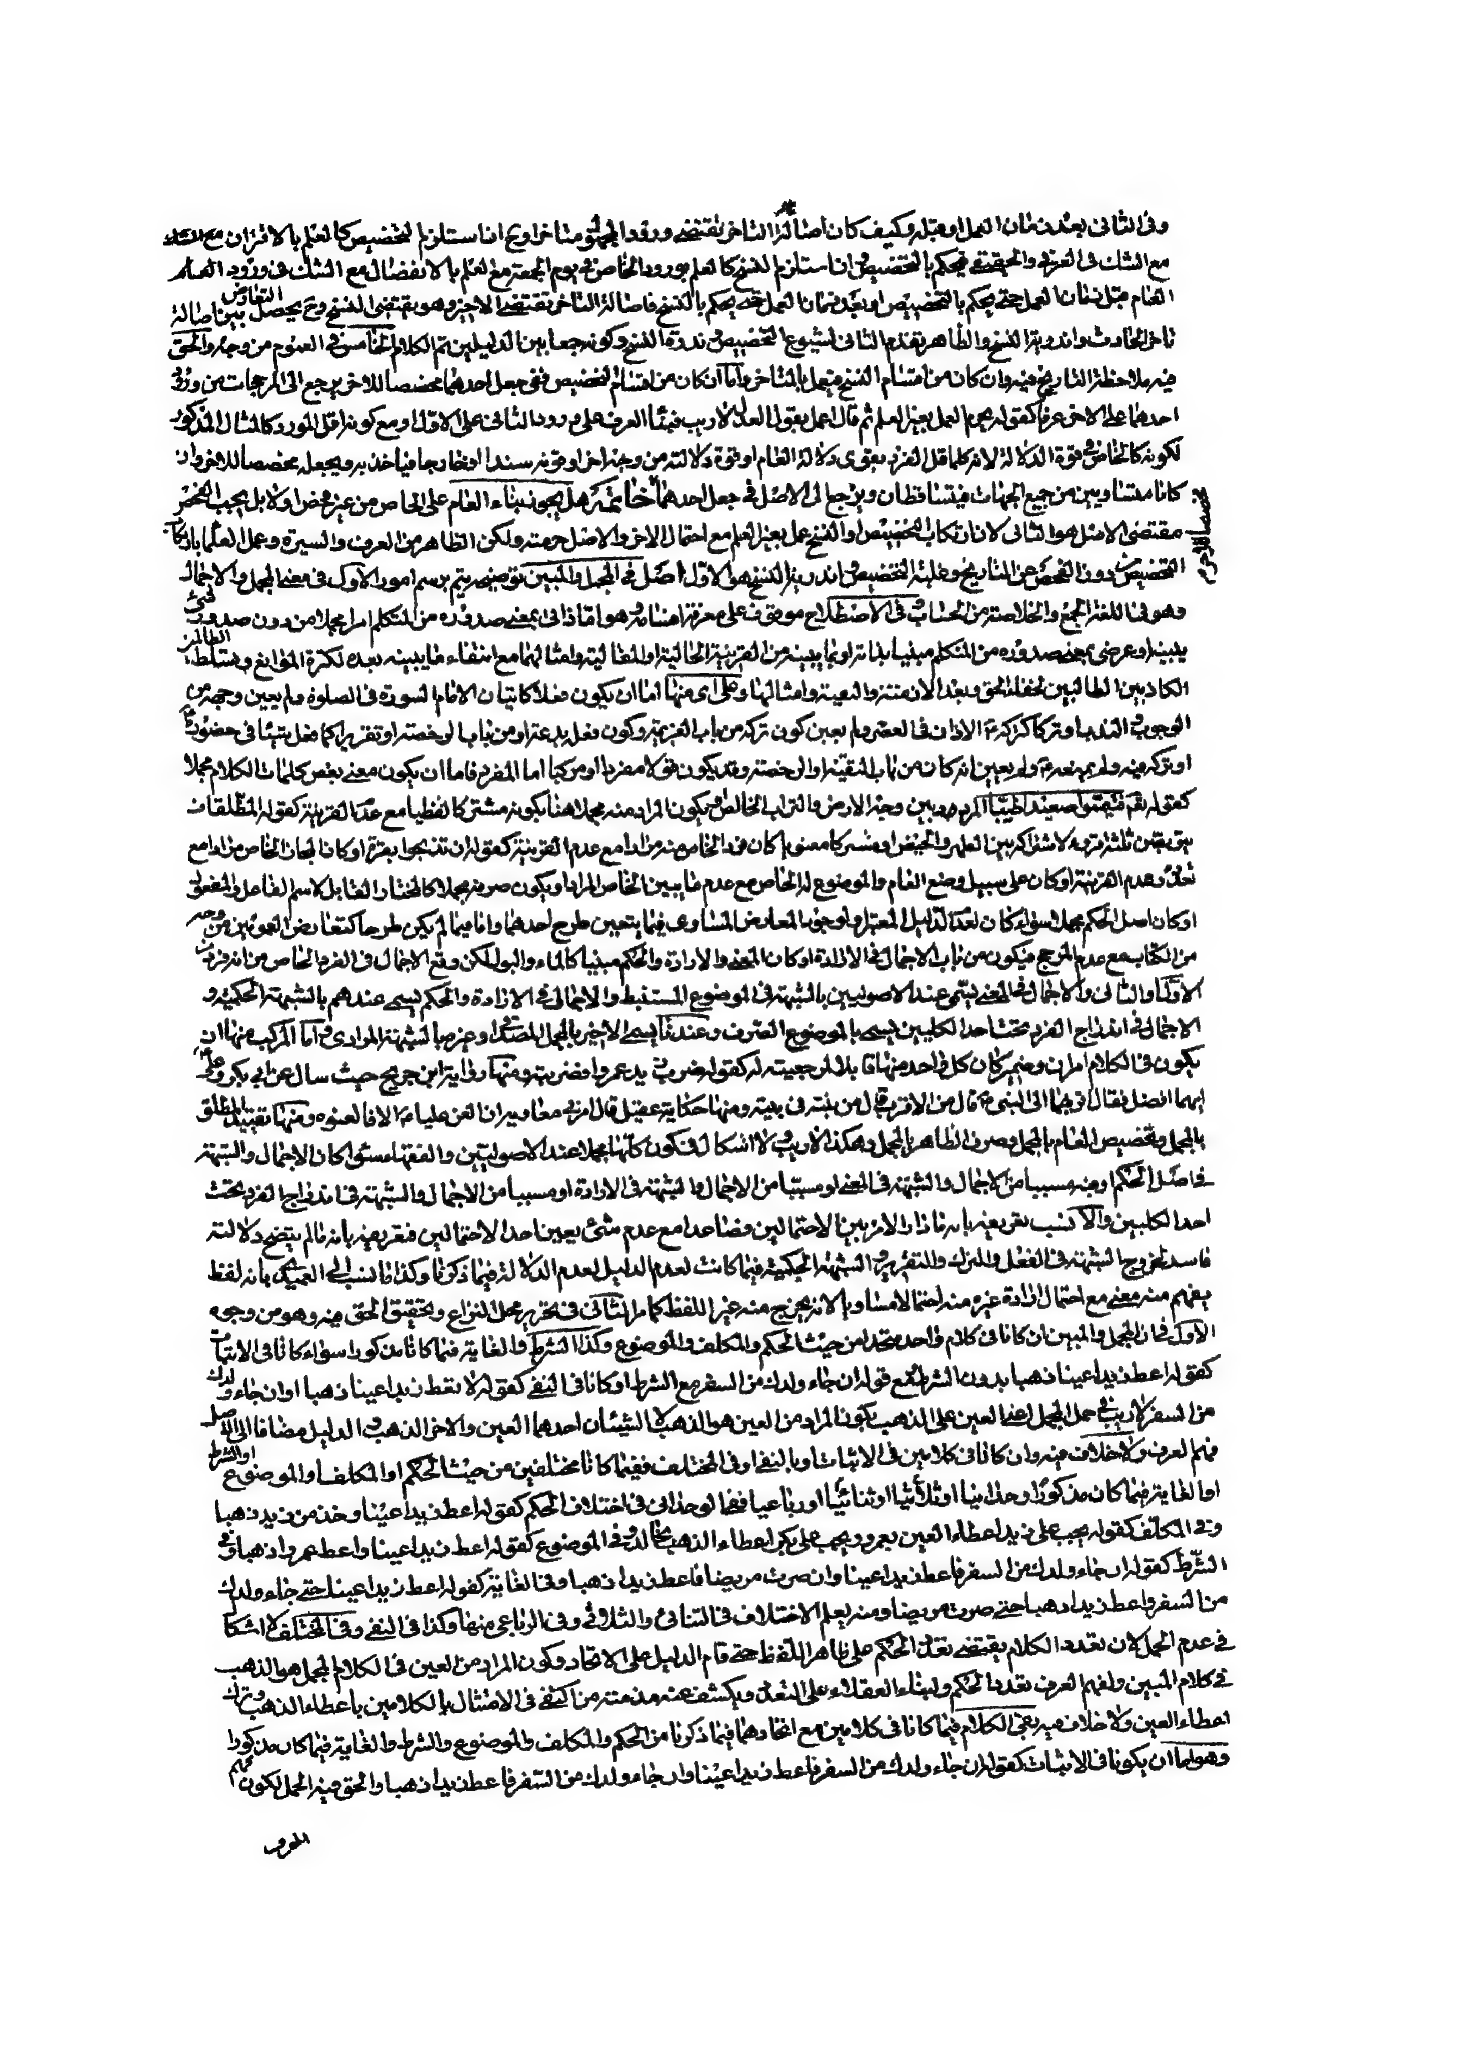 وفى الثانى بعد زمان العمل او قبله وكيف كان اصالة التاخر تقتضى ورود المجهول متاخرا وح ان استلزم التخصيص كالعلم بالاقتران مع الشك
مع الشك فى العرفى والحقيقى فيحكم بالتخصيص وان استلزم النسخ كالعلم بورود الخاص فى يوم الجمعة مع العلم بالانفصال مع الشك فى ورود العام
العام قبل زمان العمل حتى يحكم بالتخصيص او بعد زمان العمل حتى يحكم بالنسخ فاصالة التاخر تقتضى الاخير وهو يقتضى النسخ وح يحصل التعارض بين اصالة
تاخر الحادث واندرية النسخ والظاهر تقدم الثانى لشيوع التخصيص وندرة النسخ وكونه جمعا بين الدليلين ثم الكلام الخامس فى العموم من وجه والحق
فيه ملاحظة التاريخ فيه وان كان من اقسام النسخ فيعمل بالمتاخر واما ان كان من اقسام التخصيص ففى جعل احدهما مخصصا للاخر يرجع الى المرجحات من ورود
احدهما على الاخر عرفا كقوله يحرم العمل بغير العلم ثم قال اعمل بقول العدل لاريب فبناء العرف على ورود الثانى على الاول او مع كونه اقل المورد كالمثال المذكور
لكونه كالخاص فى قوة الدلالة لانه كلما قل الفرد يقوى دلالة العام او قوة دلالته من وجه اخر او قوته سندا او خارجا فياخذ به ويجعله مخصصا للاخر وان
كانا متساويين من جميع الجهات فيتساقطان ويرجع الى الاصل فى جعل احدهما خاتمة هل يجوز بناء العام على الخاص من غير فحص اولا بل يجب الفحص
مقتضى الاصل هو الثانى لان ارتكاب التخصيص او النسخ عمل بغير العلم مع احتمال الاخر والاصل حرمته ولكن الظاهر من العرف والسيرة وعمل العلماء بارتكاب
التخصيص من دون الفحص عن التاريخ وغلبة التخصيص واندرية النسخ هو الاول اصل فى المجمل والمبين توضيحه يتم برسم امور الاول فى معنى المجمل والاجمال
وهو فى اللغة الجمع والخلاصة من الحساب وفى الاصطلاح موقوف على معرفة اقسامه وهو اما ذاتى بمعنى صدوره من المتكلم امرا مجملا من دون صدور شئ
يبينه او عرضى بمعنى صدوره من المتكلم مبينا بذاته او بما يبينه من القرينة الحالية او المقالية وامثالهما مع انتفاء ما يبينه بعده لكثرة الموانع وتسلط الظالمين
الكاذبين الطالبين لخفاء الحق وبعد الازمنة والتقية وامثالها وعلى اى منهما اما ان يكون فعلا كاتيان الامام السورة فى الصلوة ولم يعين وجهه من
الوجوب والندب او تركا كتركه الاذان فى العصر ولم يعين كون تركه من باب العزيمة وكون فعله بدعة او من باب الرخصة او تقريرا كما فعل شيئا فى حضوره
او تركه فيه ولم يمنعه ولم يعين انه كان من باب التقية او الرخصة وقد يكون قولا مفردا او مركبا اما المفرد فاما ان يكون معنى بعض كلمات الكلام مجملا
كقوله تع فتيمموا صعيدا طيبا المردد بين وجه الارض والتراب الخالص ويكون المراد منه مجملا هنا بكونه مشتركا لفظيا مع عدم القرينة كقوله المطلقات
يتربصن ثلثة قروء لاشتراكه بين الطهر والحيض او مشتركا معنويا كان فرد الخاص منه مرادا مع عدم القرينة كقوله ان تذبحوا بقرة او كان المجاز الخاص مرادا مع
تعدده وعدم القرينة او كان على سبيل وضع العام والموضوع له الخاص مع عدم ما يبين الخاص المراد او يكون صرفه مجملا كالمختار القابل لاسم الفاعل والمفعول
او كان اصل الحكم مجملا سواء كان لفقد الدليل المعتبر او لوجود المعارض المساوى فيما يتعين طرح احدهما واما فيما لم يكن طرحا كتعارض العمومين من وجه
من الكتاب مع عدم المرجح فيكون من باب الاجمال فى الارادة او كان المعنى والارادة والحكم مبينا كالماء والبول لكن وقع الاجمال فى الفرد الخاص من انه فرد
الاول او الثانى والاجمال فى المعنى يسمى عند الاصوليين بالشبهة فى الموضوع المستنبط والاجمال فى الارادة والحكم يسمى عندهم بالشبهة الحكمية و
الاجمال فى اندراج الفرد تحت احد الكليين يسمى بالموضوع الصرف وعندنا يسمى الاخير بالمجمل المصداقى وغيره بالشبهة المرادى واما المركب منها ان
يكون فى الكلام امران وضمير كان كل واحد منهما قابلا لمرجعيته له كقوله ضرب زيد عمروا فضربته ومنها رواية ابن جريح حيث سال عن ابى بكر وعلى
ايهما افضل فقال اقربهما الى النبى قال من الاقرب قال من بنته فى بيته ومنها حكاية عقيل قال امرنى معاوية ان العن عليا الا فالعنوه ومنها تقييد المطلق
بالمجمل وتخصيص العام بالمجمل وصرف الظاهر بالمجمل وهكذا لاريب ولا اشكال فى كون كلها مجملا عند الاصوليين والفقهاء سواء كان الاجمال والشبهة
فى اصل الحكم او فيه مسببا من الاجمال والشبهة فى المعنى او مسببا من الاجمال والشبهة فى الارادة او مسببا من الاجمال والشبهة فى اندراج الفرد تحت
احد الكليين والانسب تعريفه بانه ما دار الامر بين الاحتمالين فصاعدا مع عدم شئ يعين احد الاحتمالين فتعريفه بانه ما لم يتضح دلالته
فاسد لخروج الشبهة فى الفعل والترك والتقرير والشبهة الحكمية فيما كانت لعدم الدليل لعدم الدلالة فيما ذكرنا وكذا ما نسب الى العميدى بانه لفظ
يفهم منه معنى مع احتمال ارادة غيره منه احتمالا مساويا لانه يخرج منه غير اللفظ كما مر الثانى فى تحرير محل النزاع وتحقيق الحق فيه وهو من وجوه
الاول فى ان المجمل والمبين ان كانا فى كلام واحد متحدا من حيث الحكم والمكلف والموضوع وكذا الشرط والغاية فيما كانا مذكورا سواء كانا فى الاثبات
كقوله اعط زيدا عينا ذهبا بدون الشرط او مع قوله ان جاء ولدك من السفر مع الشرط او كانا فى النفى كقوله لا تعط زيدا عينا ذهبا او ان جاء ولدك
من السفر لاريب فى حمل المجمل اعنى العين على الذهب بكون المراد من العين هو الذهب لا الشيئان احدهما العين والاخر الذهب والدليل مضافا الى الاصل
فهم العرف ولا خلاف فيه وان كانا فى كلامين فى الاثبات او بالنفى او فى المختلف ففيما كانا مختلفين من حيث الحكم او المكلف او الموضوع او الشرط
او الغاية فيما كان مذكورا وحدانيا او ثلاثيا او ثنائيا او رباعيا ففى الوحدانى فى اختلاف الحكم كقوله اعط زيدا عينا وخذ من زيد ذهبا
وفى المكلف كقوله يجب على زيد اعطاء العين بعمرو ويجب على بكر اعطاء الذهب بخالد وفى الموضوع كقوله اعط زيدا عينا واعط عمروا ذهبا وفى
الشرط كقوله ان جاء ولدك من السفر فاعط زيدا عينا وان صرت مريضا فاعط زيدا ذهبا وفى الغاية كقوله اعط زيدا عينا حتى جاء ولدك
من السفر واعط زيدا ذهبا حتى صرت مريضا ومنه يعلم الاختلاف فى الثنائى والثلاثى وفى الرباعى منها وكذا فى النفى وفى المختلف لا اشكال
فى عدم الحمل لان تعدد الكلام يقتضى تعدد الحكم على ظاهر اللفظ حتى قام الدليل على الاتحاد وكون المراد من العين فى الكلام المجمل هو الذهب
فى كلام المبين ولفهم العرف تعدد الحكم ولبناء العقلاء على التعدد ويكشف عنه مذمته من اكتفى فى الامتثال بالكلامين باعطاء الذهب وترك
اعطاء العين ولا خلاف فيه بقى الكلام فيما كانا فى كلامين مع اتحادهما فيما ذكرنا من الحكم والمكلف والموضوع والشرط والغاية فيما كان مذكورا
وهو اما ان يكونا فى الاثبات كقوله ان جاء ولدك من السفر فاعط زيدا عينا وان جاء ولدك من السفر فاعط زيدا ذهبا والحق فيه الحمل لكون فهم
العرف